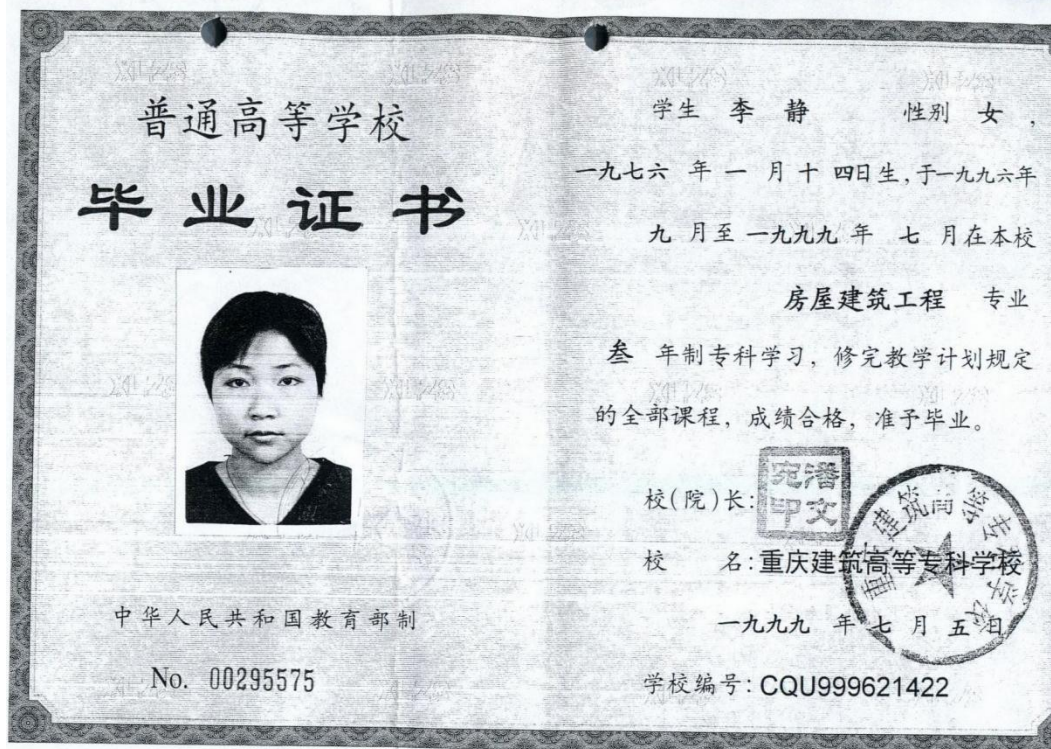 普通高等学校
毕业证书
中华人民共和国教育部制
No. 00295575
学生 李静 性别 女，
一九七六 年 一 月 十四日生，于一九九六年
九 月至 一九九九 年 七 月在本校
房屋建筑工程 专业
叁 年制专科学习，修完教学计划规定
的全部课程，成绩合格，准予毕业。
校(院)长：
潘文宛印
校 名：重庆建筑高等专科学校
重庆建筑高等专科学校
一九九九 年 七 月 五 日
学校编号：CQU999621422